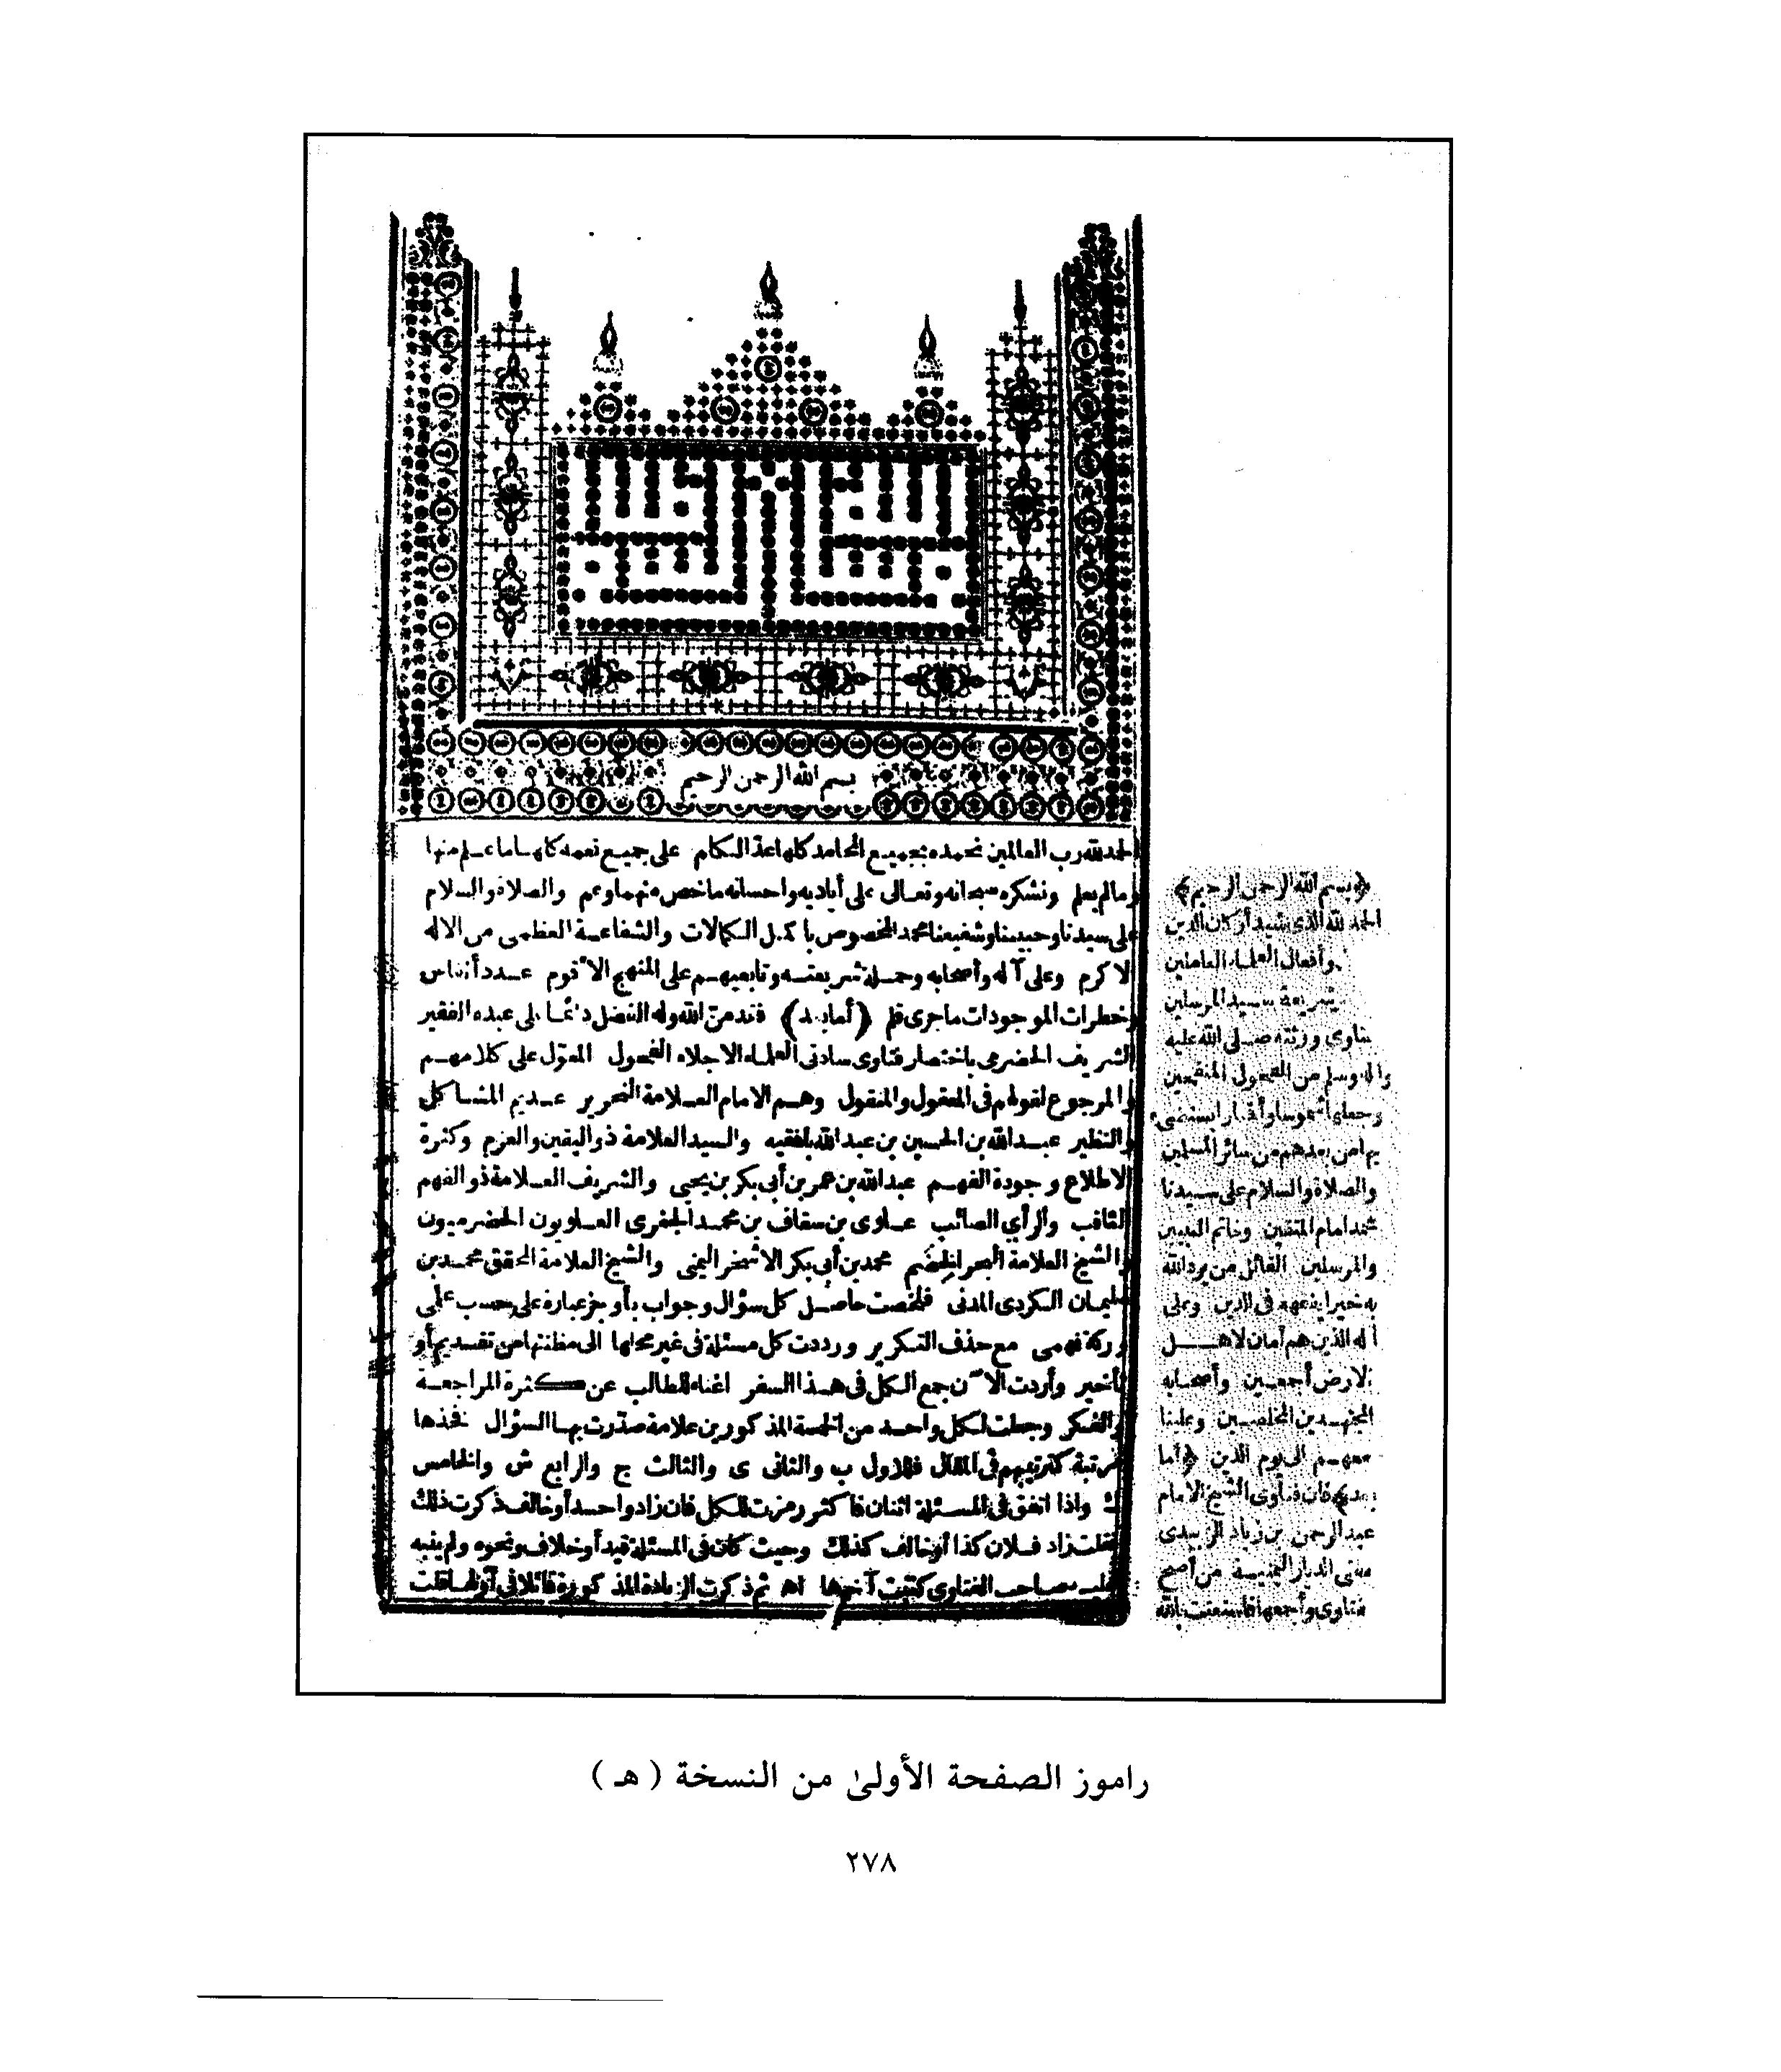 بسم الله الرحمن الرحيم
الحمد لله رب العالمين نحمده بجميع المحامد كلها عد الكلام على جميع نعمه كلها ما علم منها
وما لم يعلم ونشكره سبحانه وتعالى على أياديه واحسانه ما خص منهما وعم والصلاة والسلام
على سيدنا وحبيبنا وشفيعنا محمد المخصوص بأكمل الكمالات والشفاعة العظمى من الاله
الاكرم وعلى آله وأصحابه وحملة شريعته وتابعيهم على المنهج الاقوم عدد أنفاس
وخطرات الموجودات ما جرى قلم (أما بعد) فقد من الله وله الفضل دائما على عبده الفقير
الشريف الحضرمى باختصار فتاوى سادتى العلماء الاجلاء الفحول المعول على كلامهم
والمرجوع لقولهم فى المعقول والمنقول وهم الامام العلامة النحرير عديم المشاكل
والنظير عبد الله بن الحسين بن عبد الله بلفقيه والسيد العلامة ذو اليقين والعزم وكثرة
الاطلاع وجودة الفهم عبد الله بن عمر بن أبى بكر بن يحيى والشريف العلامة ذو الفهم
الثاقب والرأي الصائب علوى بن سقاف بن محمد الجفرى العلويون الحضرميون
والشيخ العلامة البحر الخضم محمد بن أبى بكر الاشخر اليمنى والشيخ العلامة المحقق محمد بن
سليمان الكردى المدنى فلخصت حاصل كل سؤال وجواب بأوجز عبارة على حسب على
وركة فهمى مع حذف التكرير ورددت كل مسئلة فى غير محلها الى مظنتها من تقديم أو
تأخير وأردت الآن جمع الكل فى هذا السفر اغناء للطالب عن كثرة المراجعة
والفكر وجعلت لكل واحد من الخمسة المذكورين علامة صدرت بها السؤال فخذها
مرتبة كترتيبهم فى المقال فللاول ب والثانى ى والثالث ج والرابع ش والخامس
ك واذا اتفق فى المسئلة اثنان فاكثر رمزت للكل فان زاد واحد أو خالف ذكرت ذلك
فقلت زاد فلان كذا أو خالف كذلك وحيث كان فى المسئلة قيد أو خلاف ونحوه ولم ينبه
عليه صاحب الفتاوى كتبت آخرها اه ثم ذكرت الزيادة المذكورة قائلا فى أولها قلت
﴿بسم الله الرحمن الرحيم﴾
الحمد لله الذى شيد أركان الدين
وأفعال العلماء العاملين
شريعة سيد المرسلين
فتاوى ورثته صلى الله عليه
وآله وسلم من الفحول المتقنين
وجعلهم شموسا وأقمارا يستضىء
بها من بعدهم من سائر المسلين
والصلاة والسلام على سيدنا
محمد امام المتقين وخاتم النبيين
والمرسلين القائل من يرد الله
به خيرا يفقهه فى الدين وعلى
آله الذين هم أمان لاهل
الارض أجمعين وأصحابه
المجتهدين المخلصين وعلينا
معهم الى يوم الدين ﴿أما
بعد﴾ فان فتاوى الشيخ الامام
عبد الرحمن بن زياد الزبيدى
مفتى الديار اليمنية من أصح
فتاوى وأجمعها فاستعنت بالله
راموز الصفحة الأولىٰ من النسخة ( هـ )
٢٧٨